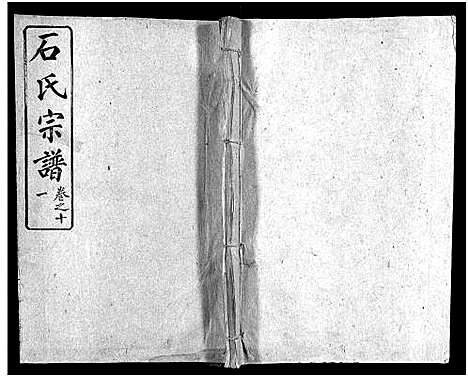 石氏宗譜
卷之十一